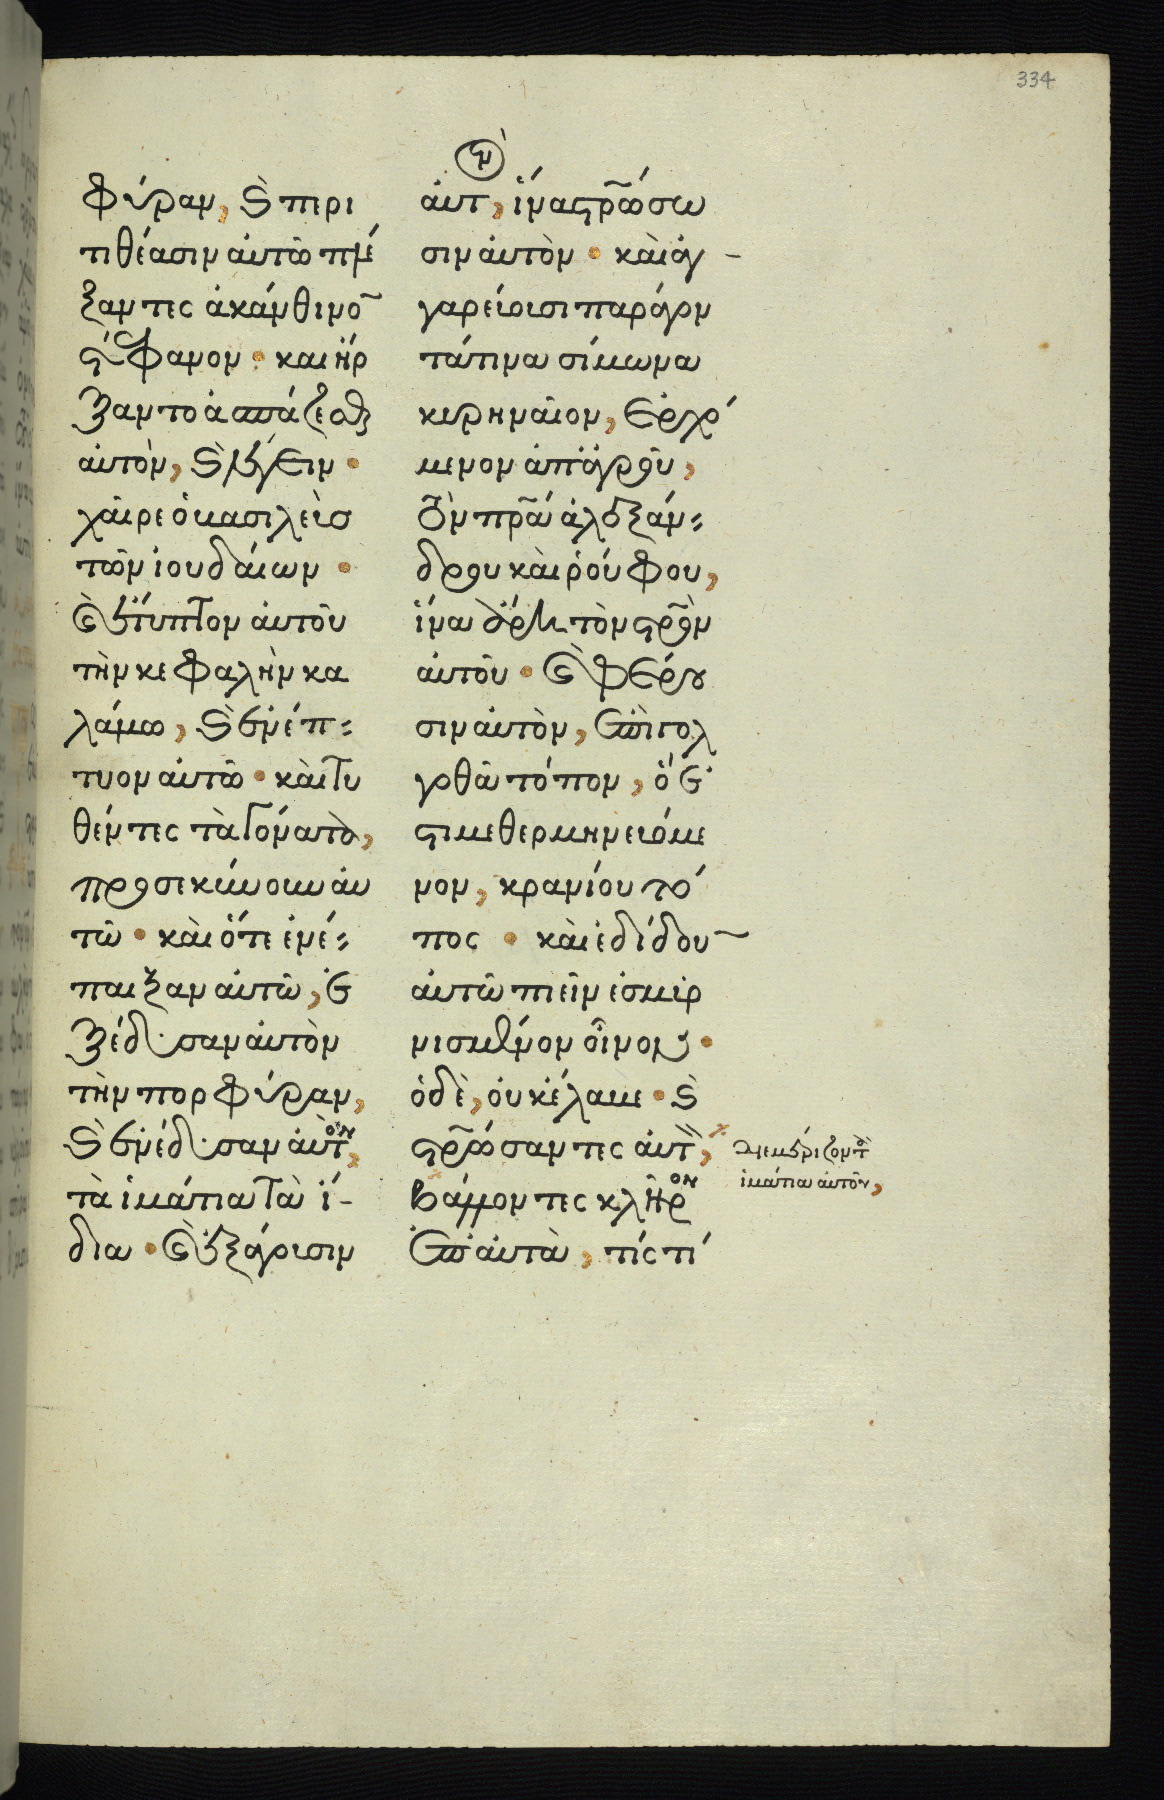 334
φύραν, ϗ̀ περι
τιθέασιν ἀυτῶ πλέ
ξαντες ἀκάνθινο
στέφανον · και ἠρ
ξαντο ἀσπάζεσθαι
ἀυτὸν, ϗ̀ λέγειν ·
χαῖρε ὁ βασιλεὺσ
τῶν ἰουδάιων ·
ϗ̀ ἔτυπτον ἀυτοῦ
τὴν κεφαλὴν κα
λάμω, ϗ̀ ἐνέπ
τυον ἀυτῶ · κὰι τι
θέντες τὰ γόνατα,
προσεκύνουν ἀυ
τῶ · κὰι ὅτε ἐνέ
παιξαν ἀυτῶ, ἐ
ξέδυσαν ἀυτὸν
τὴν πορφύραν,
ϗ̀ ἐνέδυσαν ἀυτὸν,
τὰ ἱμάτια τὰ ἴ
δια · ϗ̀ ἐξάγουσιν
ἀυτ, ἵνα στρώσω
σιν ἀυτὸν · κὰι ἀγ
γαρεύουσι παράγον
τά τινα σίμωνα
κυρηναῖον, ἐρχό
μενον ἀπ' ἀγροῦ,
τὸν πρα ἀλεξάν
δρου κὰι ῥούφου,
ἵνα ἄρη τὸν στρὸν
ἀυτοῦ · ϗ̀ φέρου
σιν ἀυτὸν, ἐπὶ γολ
γοθᾶ τόπον, ὅ ἐ
στι μεθερμηνευόμε
νον, κρανίου τό
πος · κὰι ἐδίδου
ἀυτῶ πιεῖν ἐσμυρ
νισμένον οἶνον ·
ὁ δὲ, ὀυκ ἔλαβε · ϗ̀
στρώσαντες ἀυτ,
βάλλοντες κλῆρον
ἐπ' ἀυτὰ, τίς τί
διεμερίζοντο τ
ἱμάτια ἀυτοῦ,